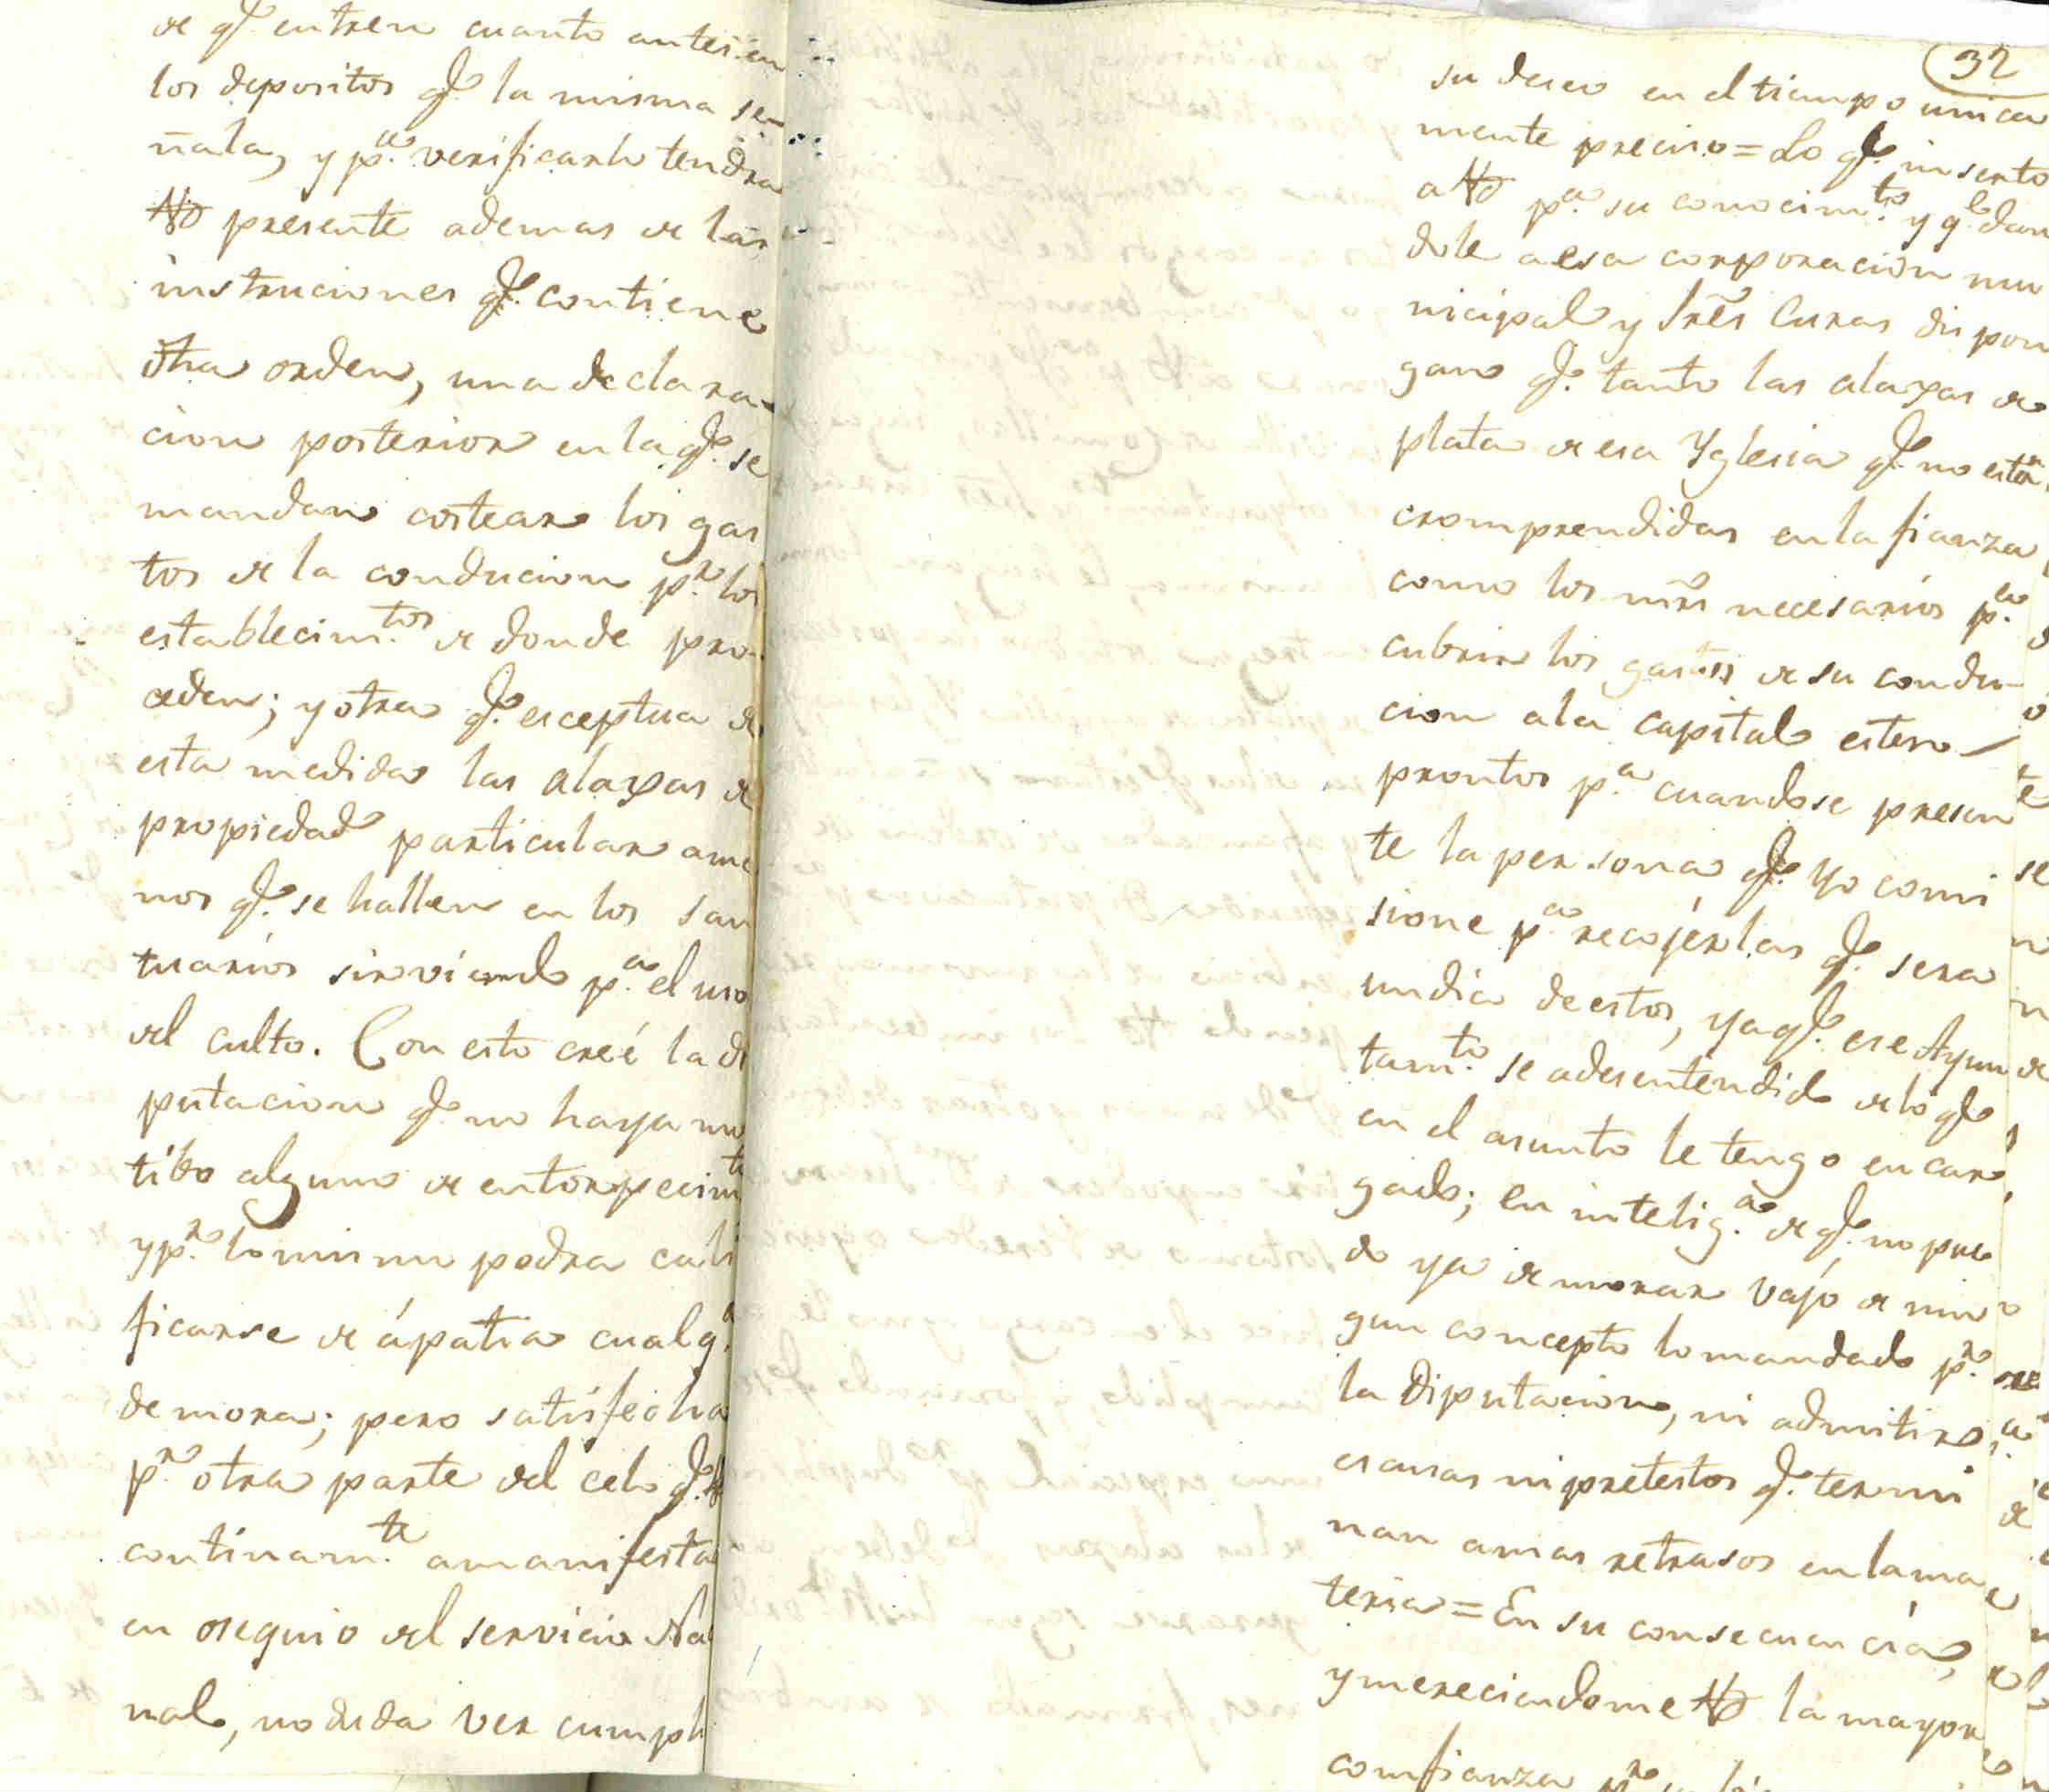 de qe. entren cuanto antes en
los depositos qe. la misma se-
ñala, y pa. verificarlo tendra
Vd presente ademas de las
instruciones qe. contiene
dha orden, una declara-
cion posterior en la qe. se
mandan costear los gas
tos de la conducion pr. los
establecimtos. de donde pro-
ceden; y otra qe. esceptua de
esta medida las alaxas de
propiedad particular ame
nos qe. se hallen en los san
tuarios sirviendo pa. el uso
del culto. Con esto creé la di
putacion qe. no haya mo
tibo alguno de entorpecimto
y pr. lo mismo podra cali
ficarse de ápatia cualqa.
demora; pero satisfecha
pr. otra parte del celo qe. Vd
continamte. a manifesta
en osequio del servicio Na
nal, no duda ver cumpli
32
su deseo en el tiempo unica
mente preciso = Lo qe. inserto
a Vd pa. su conocimto. y qe. dan
dole a esa corporacion mu
nicipal y Sres Curas dispon
gan qe. tanto las alaxas de
plata de esa Yglesia qe. no estan
cromprendidas en la fianza
como los mrs necesarios pa.
cubrir los gastos de su condu-
cion a la capital esten
prontos pa. cuando se presen
te la persona qe. Yo comi
sione pa. recojerlas qe. sera
un dia de estos, ya qe. ese Ayun
tamto. se a desentendido de lo qe
en el asunto le tengo encar
gado; en inteliga. de qe. no pue
do ya demorar vajo de nin
gun concepto lo mandado pr.
la Diputacion, ni admitir
escusas ni pretestos qe. termi
nan a mas retrasos en la ma
teria = En su consecuencia,
y mereciendome Vd la mayor
comfianza pr.